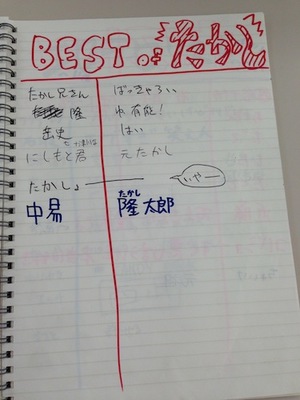 BEST of たかし
たかし兄さん ばっきゃろい
隆 有能!
岳史 はい
にしもと君 元たかし
たかし。 いやー
中易 隆太郎
たかし